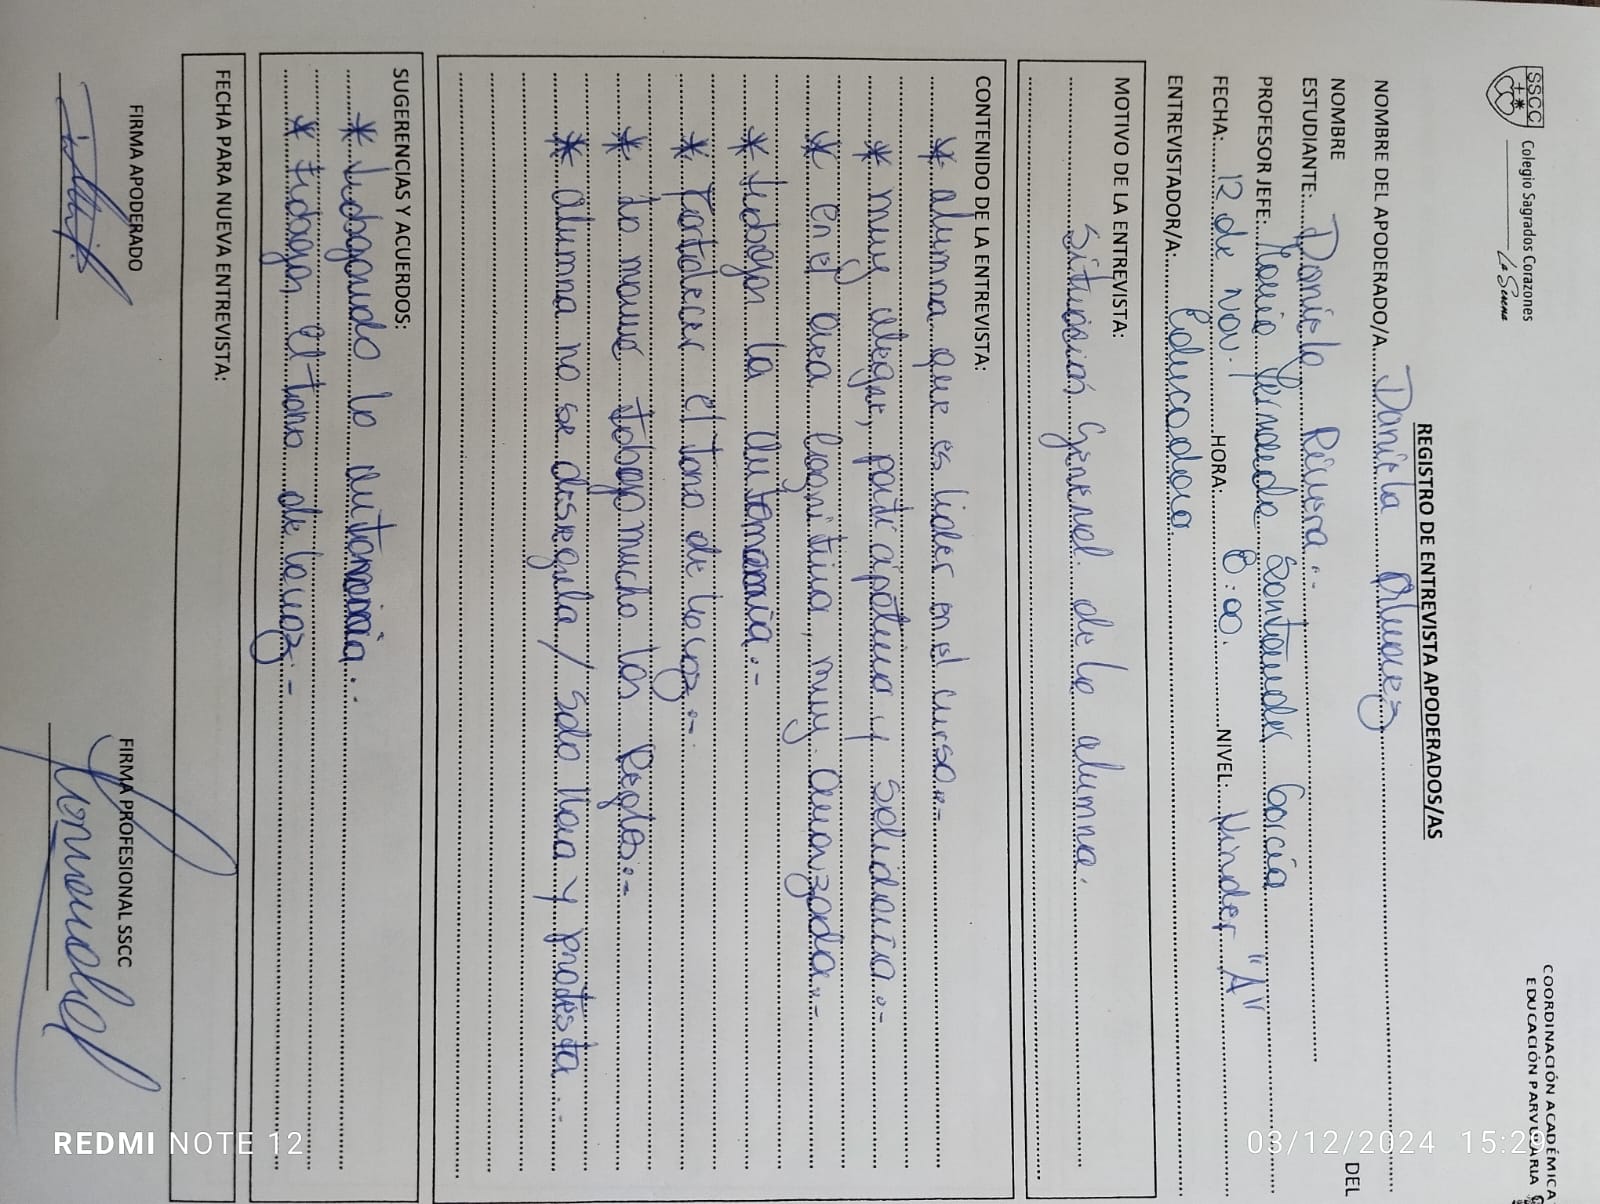 SSCC
Colegio Sagrados Corazones
La Serena
COORDINACIÓN ACADÉMICA
EDUCACIÓN PARVULARIA
REGISTRO DE ENTREVISTA APODERADOS/AS
NOMBRE DEL APODERADO/A Daniela Alvarez
NOMBRE DEL
ESTUDIANTE: Daniela Rivera.-
PROFESOR JEFE: María Fernanda Santander García
FECHA: 12 de Nov. HORA: 8:00. NIVEL: Kinder "A"
ENTREVISTADOR/A: Educadora
MOTIVO DE LA ENTREVISTA:
Situación General de la alumna.
CONTENIDO DE LA ENTREVISTA:
* alumna que es lider en el curso.-
* muy alegre, participativa y solidaria.-
* en el area Cognitiva, muy avanzada.-
* trabajar la autonomía.-
* Fortalecer el tono de la voz.-
* La mamá trabaja mucho las Reglas.-
* alumna no se desregula / solo llora y protesta.-
SUGERENCIAS Y ACUERDOS:
* trabajando la autonomía.-
* trabajar el tono de la voz.-
FECHA PARA NUEVA ENTREVISTA:
FIRMA APODERADO
FIRMA PROFESIONAL SSCC
REDMI NOTE 12
03/12/2024 15:29